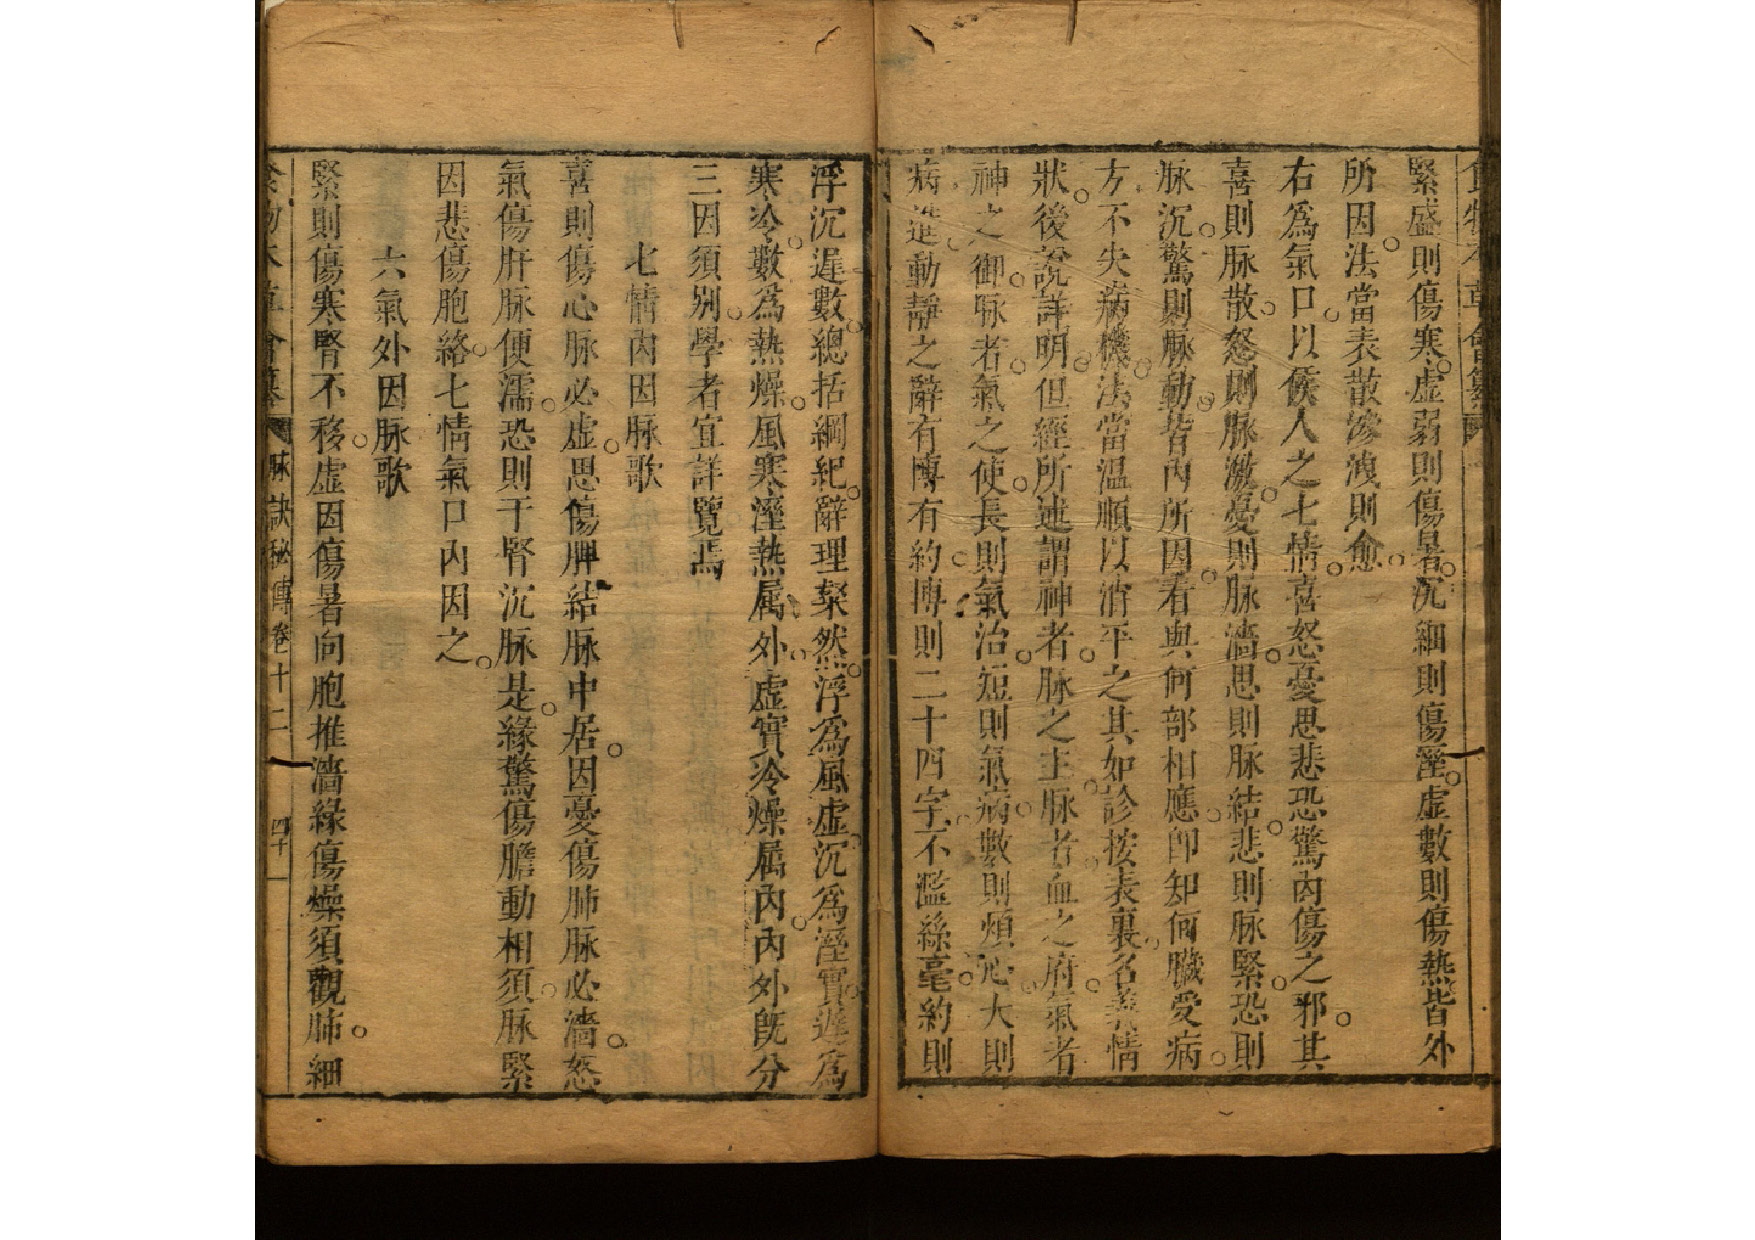 緊盛則傷寒虛弱則傷暑沉細則傷溼虛數則傷熱皆外
所因法當表散滲洩則愈
右為氣口以候人之七情喜怒憂思悲恐驚內傷之邪其
喜則脉散怒則脉激憂則脉濇思則脉結悲則脉緊恐則
脉沉驚則脉動皆內所因看與何部相應即知何臟受病
方不失病機法當温順以消平之其如診按表裏名義情
狀後說詳明但經所述謂神者脉之主脉者血之府氣者
神之御脉者氣之使長則氣治短則氣病數則煩心大則
病進動靜之辭有博有約博則二十四字不濫絲毫約則
浮沉遲數總括綱紀辭理粲然浮為風虛沉為溼實遲為
寒冷數為熱燥風寒溼熱属外虛實冷燥属內內外旣分
三因須别學者宜詳覽焉
七情內因脉歌
喜則傷心脉必虛思傷脾結脉中居因憂傷肺脉必濇怒
氣傷肝脉便濡恐則干腎沉脉是緣驚傷膽動相須脉緊
因悲傷胞絡七情氣口內因之
六氣外因脉歌
緊則傷寒腎不移虛因傷暑向胞推濇緣傷燥須觀肺細
食物本草會纂 脉訣秘傳卷十二 四十一